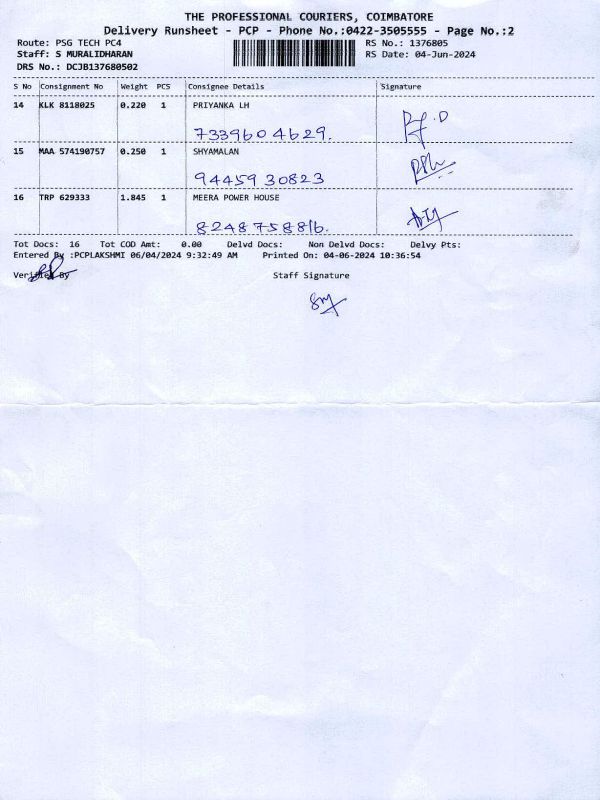 THE PROFESSIONAL COURIERS, COIMBATORE
Delivery Runsheet - PCP - Phone No.:0422-3505555 - Page No.:2
Route: PSG TECH PC4 RS No.: 1376805
Staff: S MURALIDHARAN RS Date: 04-Jun-2024
DRS No.: DCJB137680502
S No Consignment No Weight PCS Consignee Details Signature
14 KLK 8118025 0.220 1 PRIYANKA LH
7339604629.
15 MAA 574190757 0.250 1 SHYAMALAN
9445930823
16 TRP 629333 1.845 1 MEERA POWER HOUSE
8248758816.
Tot Docs: 16 Tot COD Amt: 0.00 Delvd Docs: Non Delvd Docs: Delvy Pts:
Entered By :PCPLAKSHMI 06/04/2024 9:32:49 AM Printed On: 04-06-2024 10:36:54
Verified By Staff Signature